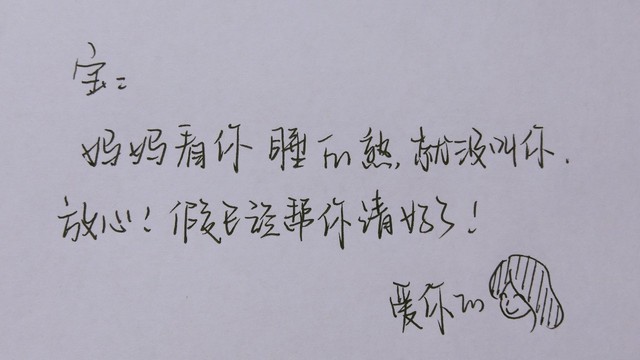 宝：
妈妈看你睡的熟，就没叫你．
放心！假已经帮你请好了！
爱你的